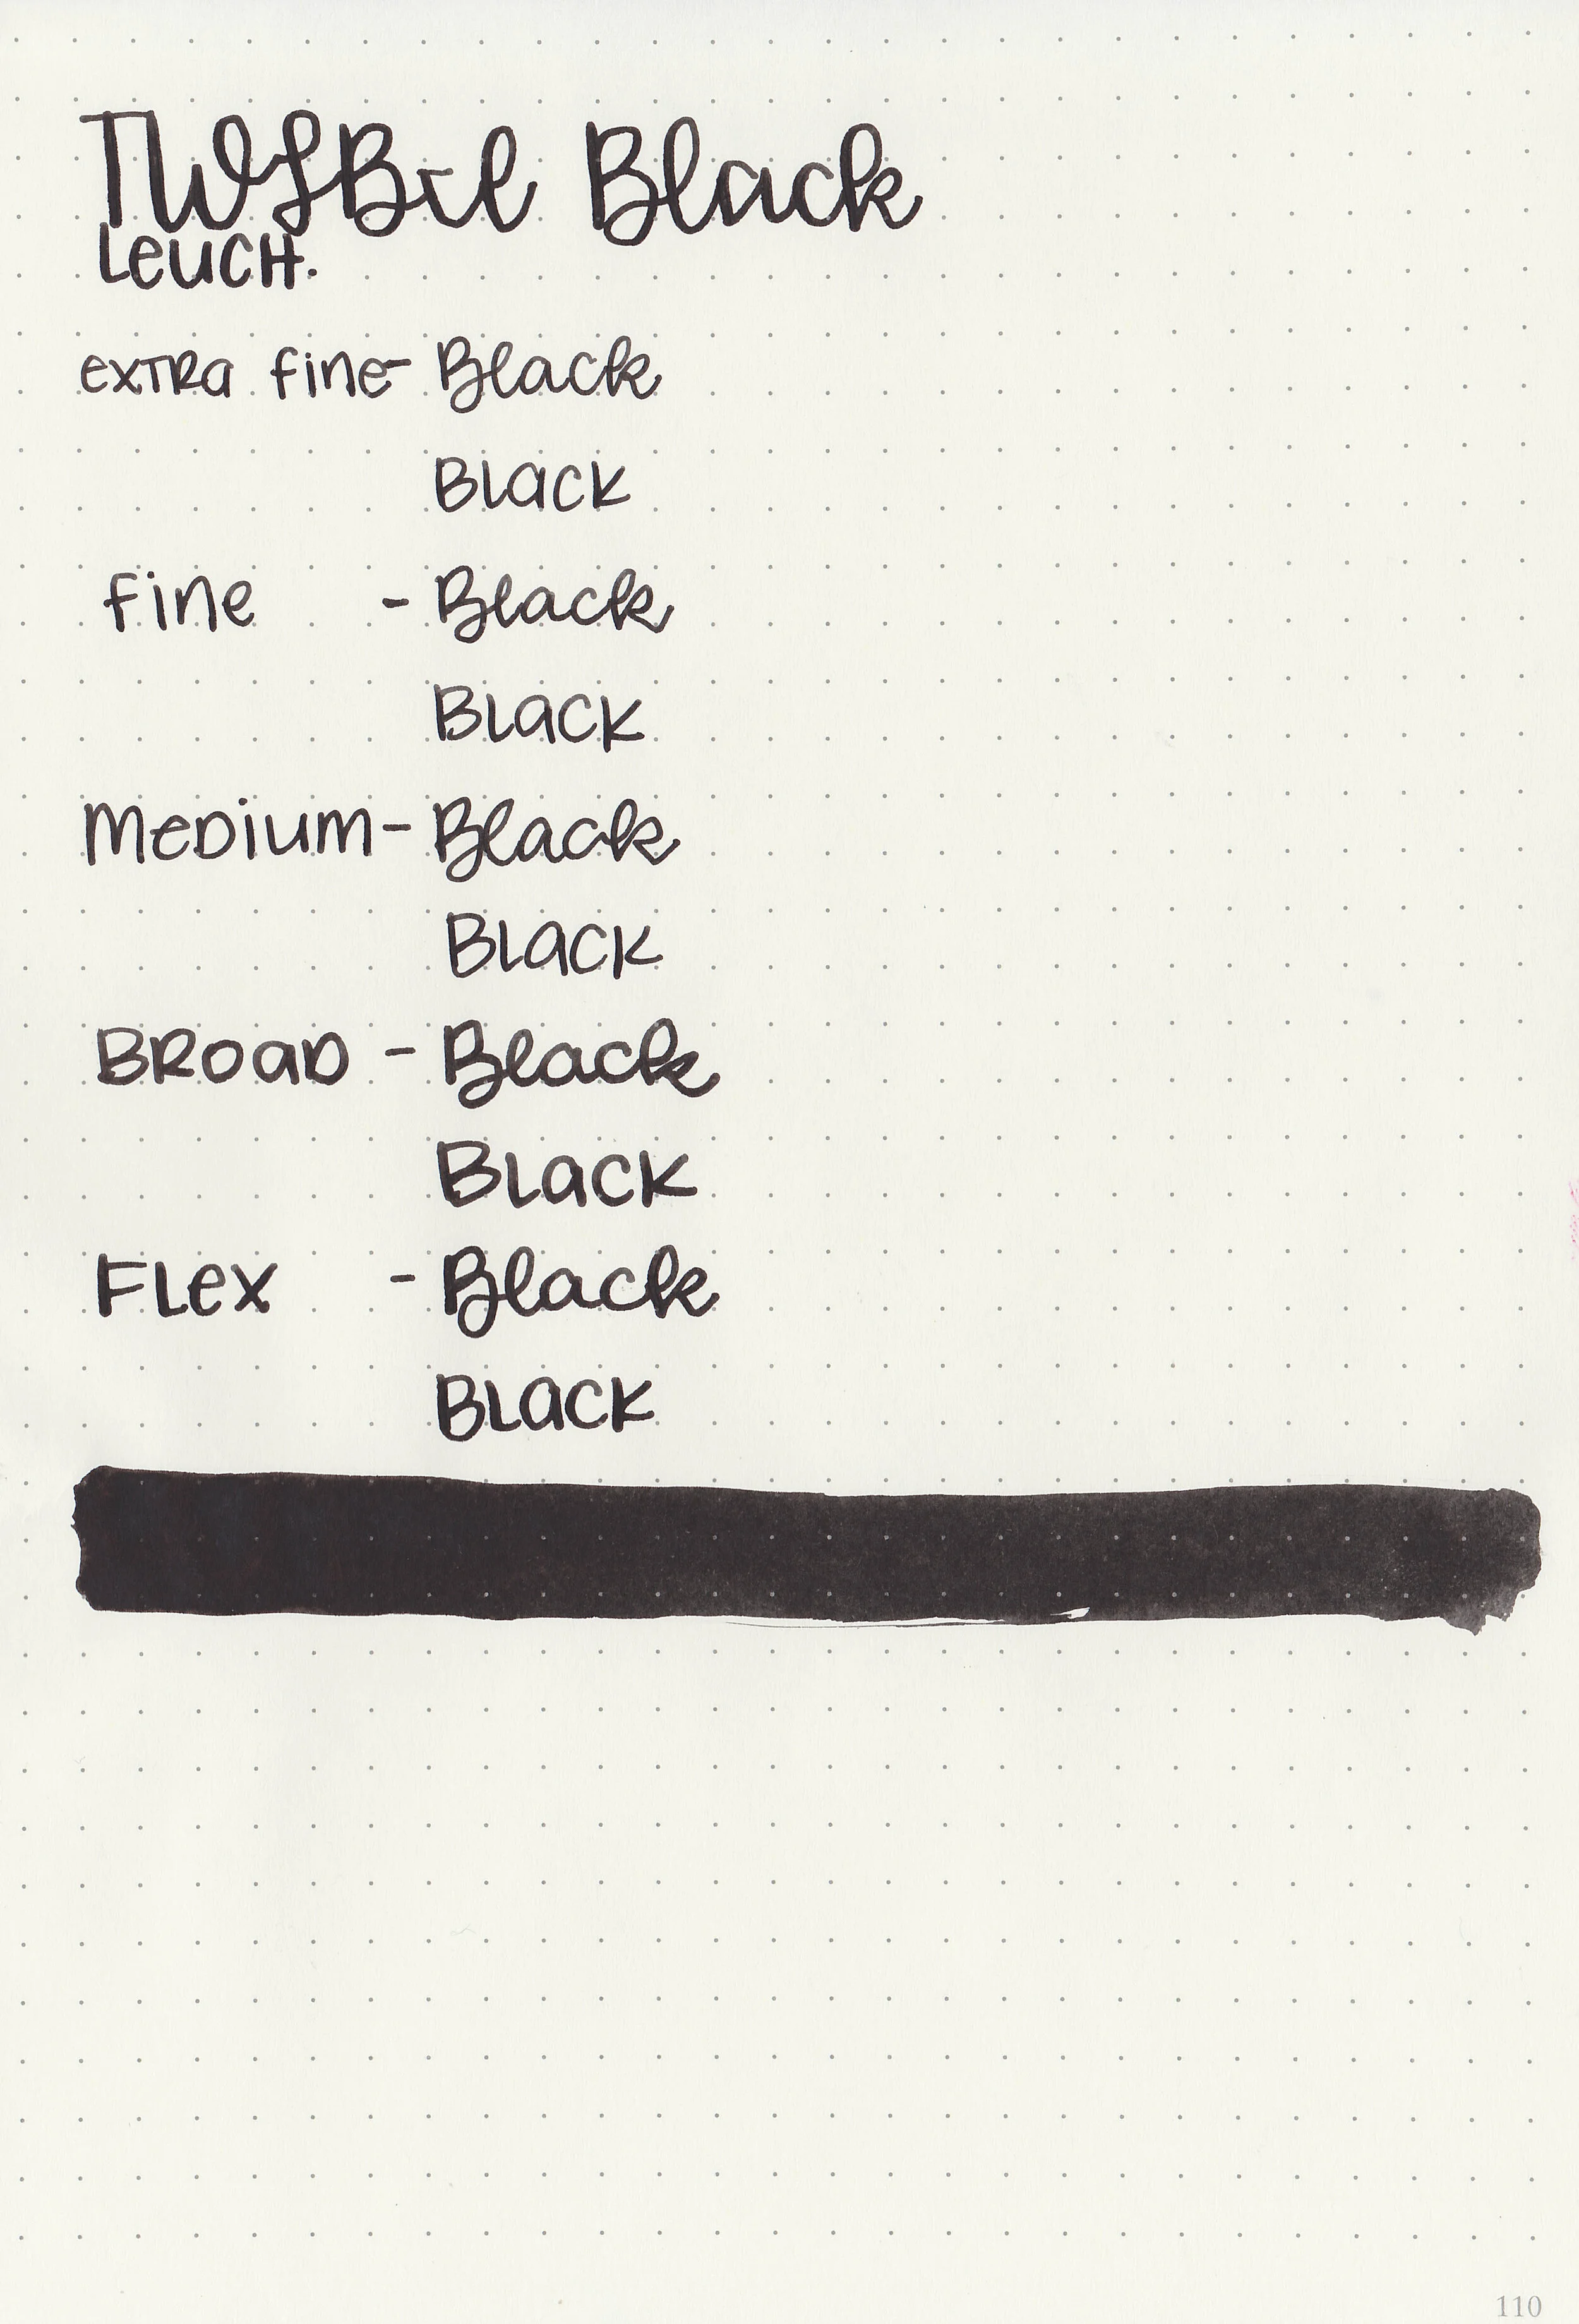 TWSBI Black
Leuch.
extra fine - Black
Black
fine - Black
Black
Medium - Black
Black
Broad - Black
Black
Flex - Black
Black
110